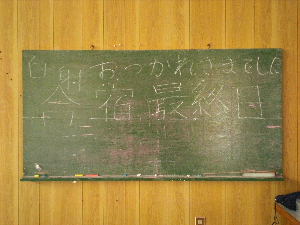 おつかれさまでした
合宿最終日